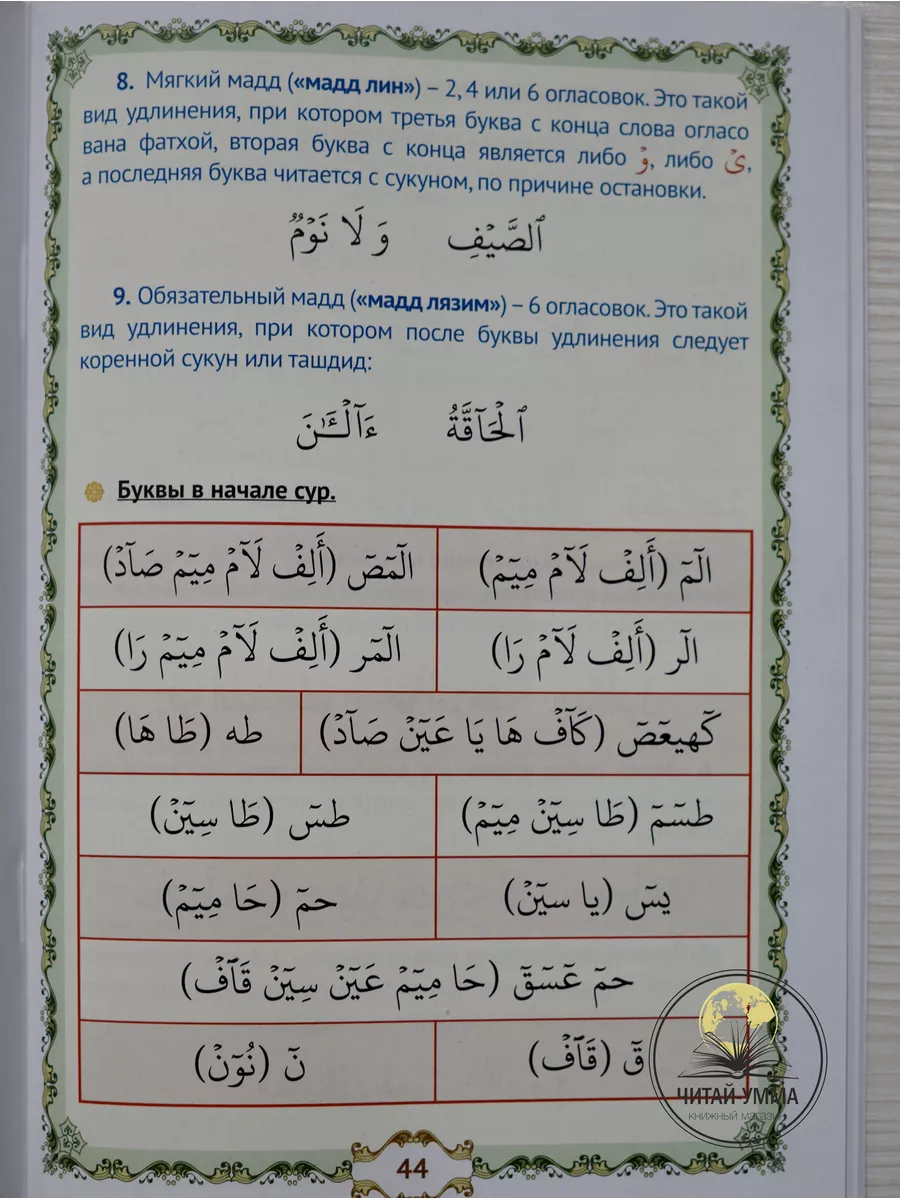 8. Мягкий мадд («мадд лин») – 2, 4 или 6 огласовок. Это такой
вид удлинения, при котором третья буква с конца слова огласо
вана фатхой, вторая буква с конца является либо وْ, либо ىْ,
а последняя буква читается с сукуном, по причине остановки.
ٱلصَّيْفِ وَ لَا نَوْمٌ
9. Обязательный мадд («мадд лязим») – 6 огласовок. Это такой
вид удлинения, при котором после буквы удлинения следует
коренной сукун или ташдид:
ٱلْحَآقَّةُ ءَآلْـَٰٔنَ
Буквы в начале сур.
الٓمٓ (أَلِفْ لَآمْ مِيٓمْ) الٓمٓصٓ (أَلِفْ لَآمْ مِيٓمْ صَآدْ)
الٓر (أَلِفْ لَآمْ رَا) الٓمٓر (أَلِفْ لَآمْ مِيٓمْ رَا)
كٓهيعٓصٓ (كَآفْ هَا يَا عَيٓنْ صَآدْ) طه (طَا هَا)
طسٓمٓ (طَا سِيٓنْ مِيٓمْ) طسٓ (طَا سِيٓنْ)
يسٓ (يا سيٓنْ) حمٓ (حَا مِيٓمْ)
حمٓ عٓسٓقٓ (حَا مِيٓمْ عَيٓنْ سِيٓنْ قَآفْ)
قٓ (قَآفْ) نٓ (نُوٓنْ)
ЧИТАЙ УММА
КНИЖНЫЙ МАГАЗИН
44